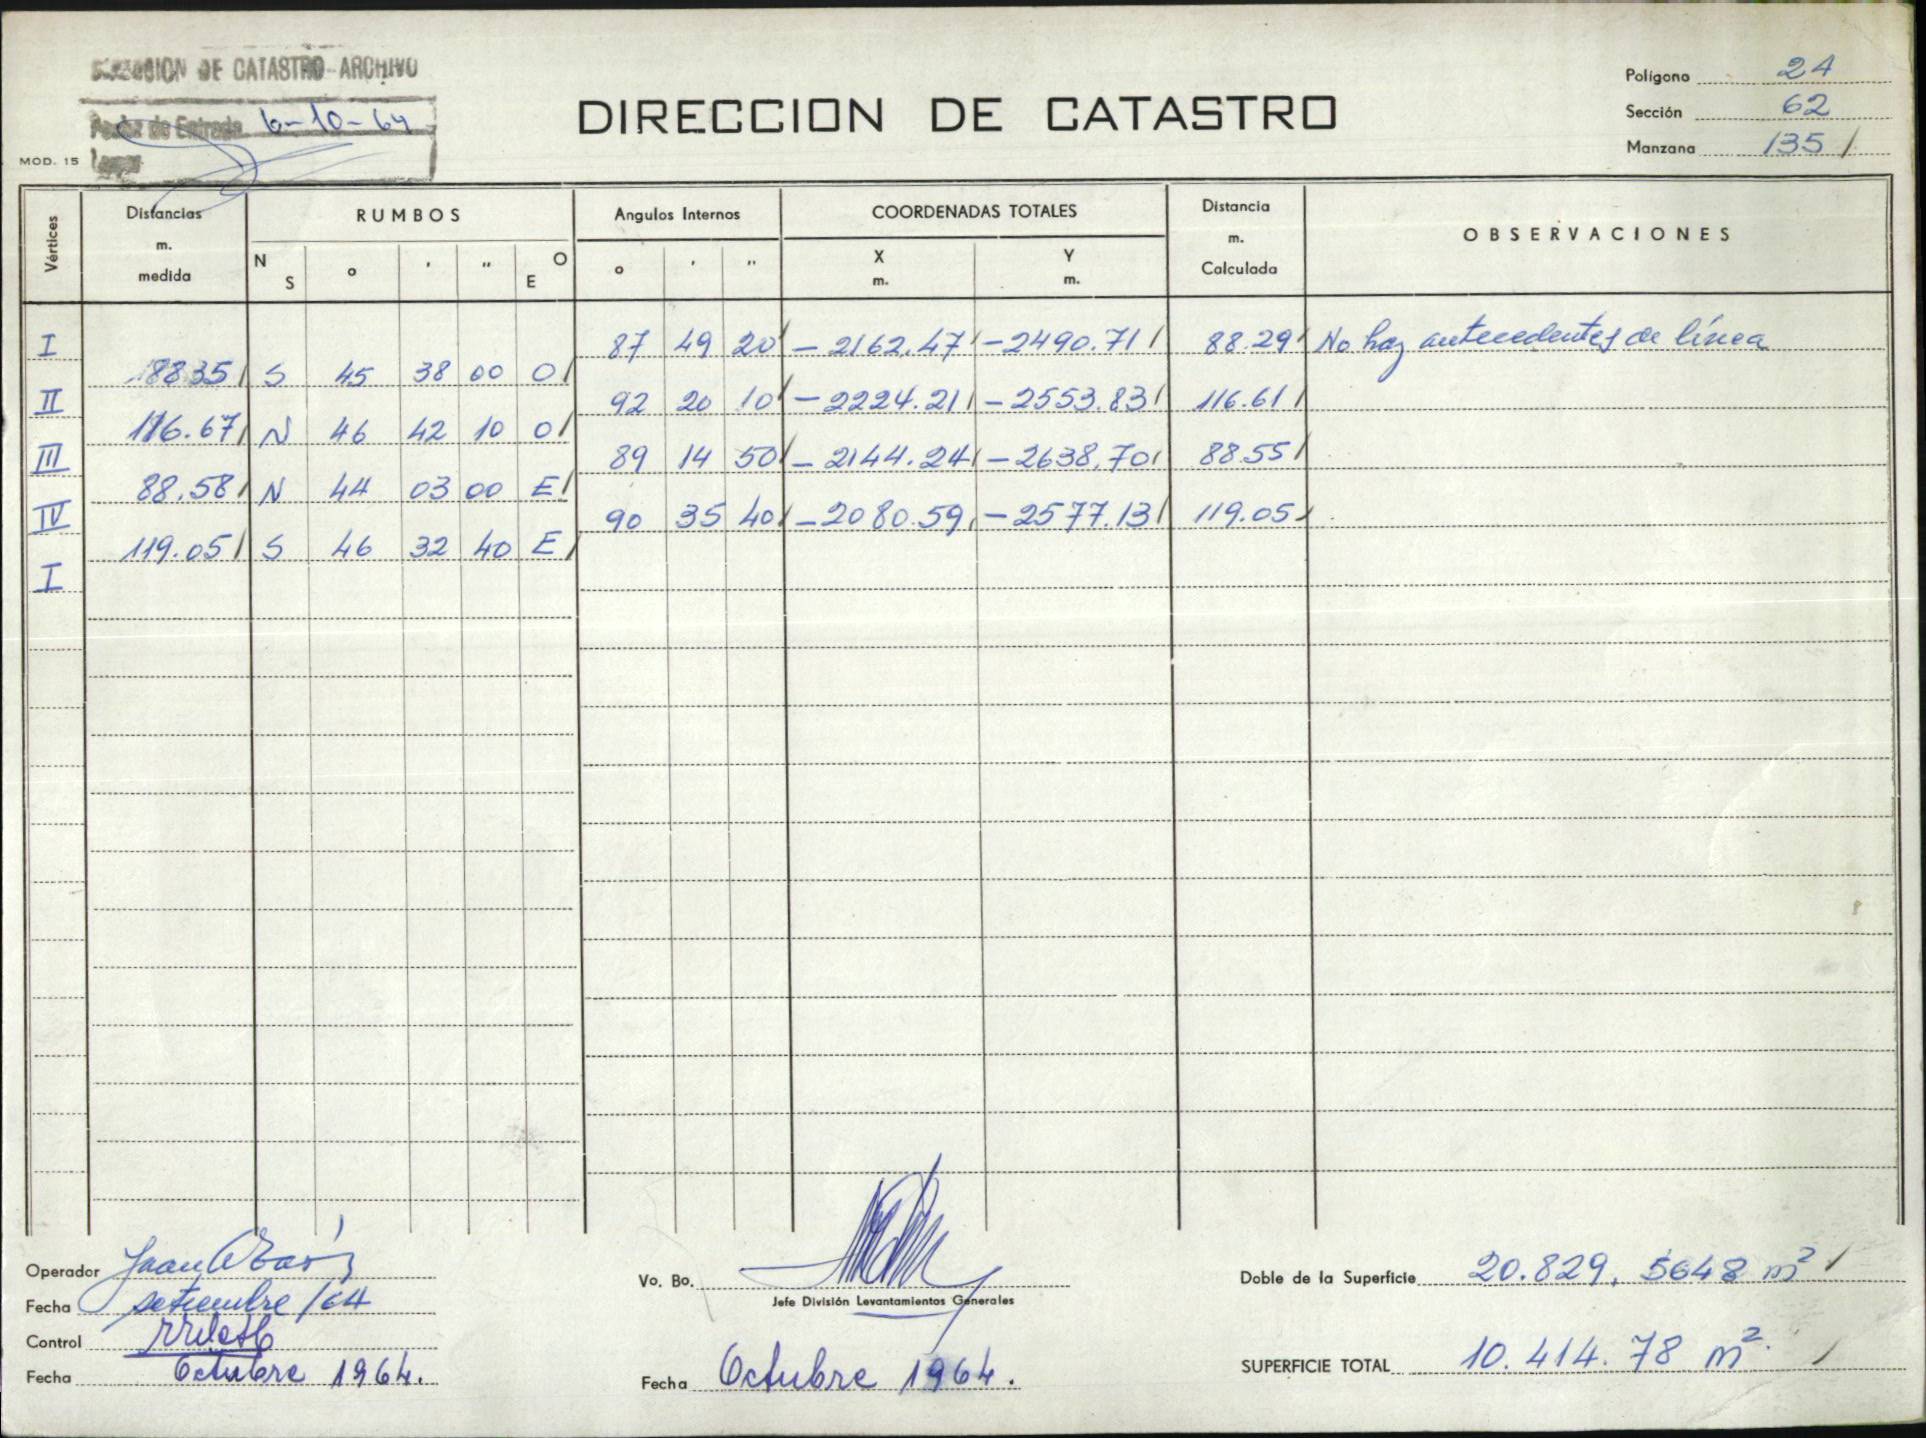 DIRECCION DE CATASTRO-ARCHIVO
Fecha de Entrada 6-10-64
MOD. 15
DIRECCION DE CATASTRO
Polígono 24
Sección 62
Manzana 135
Vértices
Distancias m. medida
RUMBOS
N S o ' " O E
Angulos Internos
o ' "
COORDENADAS TOTALES
X m. Y m.
Distancia m. Calculada
OBSERVACIONES
I 87 49 20 -2162.47 -2490.71 88.29 No hay antecedentes de línea
88 35 S 45 38 00 O
II 92 20 10 -2224.21 -2553.83 116.61
116.67 N 46 42 10 O
III 89 14 50 -2144.24 -2638.70 88.55
88.58 N 44 03 00 E
IV 90 35 40 -2080.59 -2577.13 119.05
119.05 S 46 32 40 E
I
Operador Juan
Fecha setiembre/64
Control
Fecha Octubre 1964.
Vo. Bo.
Jefe División Levantamientos Generales
Fecha Octubre 1964.
Doble de la Superficie 20.829, 5648 m²
SUPERFICIE TOTAL 10.414.78 m²